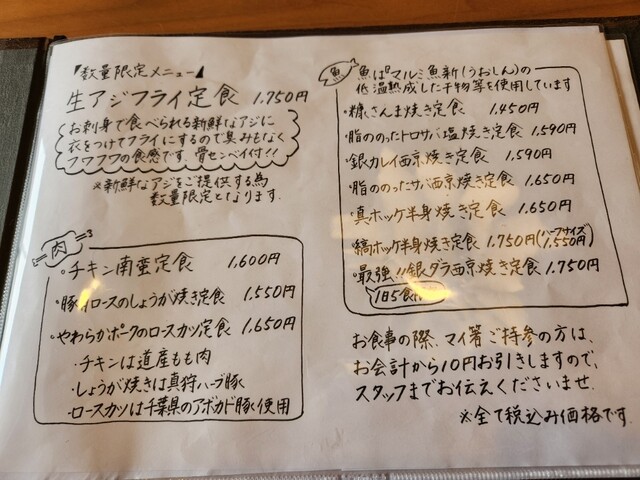 『数量限定メニュー』
生アジフライ定食 1,750円
お刺身で食べられる新鮮なアジに
衣をつけてフライにするので臭みもなく
フワフワの食感です。骨センベイ付!!
※新鮮なアジをご提供する為
数量限定となります。
肉
・チキン南蛮定食 1,600円
・豚肩ロースのしょうが焼き定食 1,550円
・やわらかポークのロースカツ定食 1,650円
・チキンは道産もも肉
・しょうが焼きは真狩ハーブ豚
・ロースカツは千葉県のアボカド豚使用
魚
魚は『マルミ魚新(うおしん)の
低温熟成した干物等を使用しています
・糠さんま焼き定食 1,450円
・脂ののったトロサバ塩焼き定食 1,590円
・銀カレイ西京焼き定食 1,590円
・脂ののったサバ西京焼き定食 1,650円
・真ホッケ半身焼き定食 1,650円
・縞ホッケ半身焼き定食 1,750円(ハーフサイズ1,550円)
・最強!!銀ダラ西京焼き定食 1,750円
1日5食
お食事の際、マイ箸ご持参の方は、
お会計から10円お引きしますので、
スタッフまでお伝えくださいませ。
※全て税込み価格です。